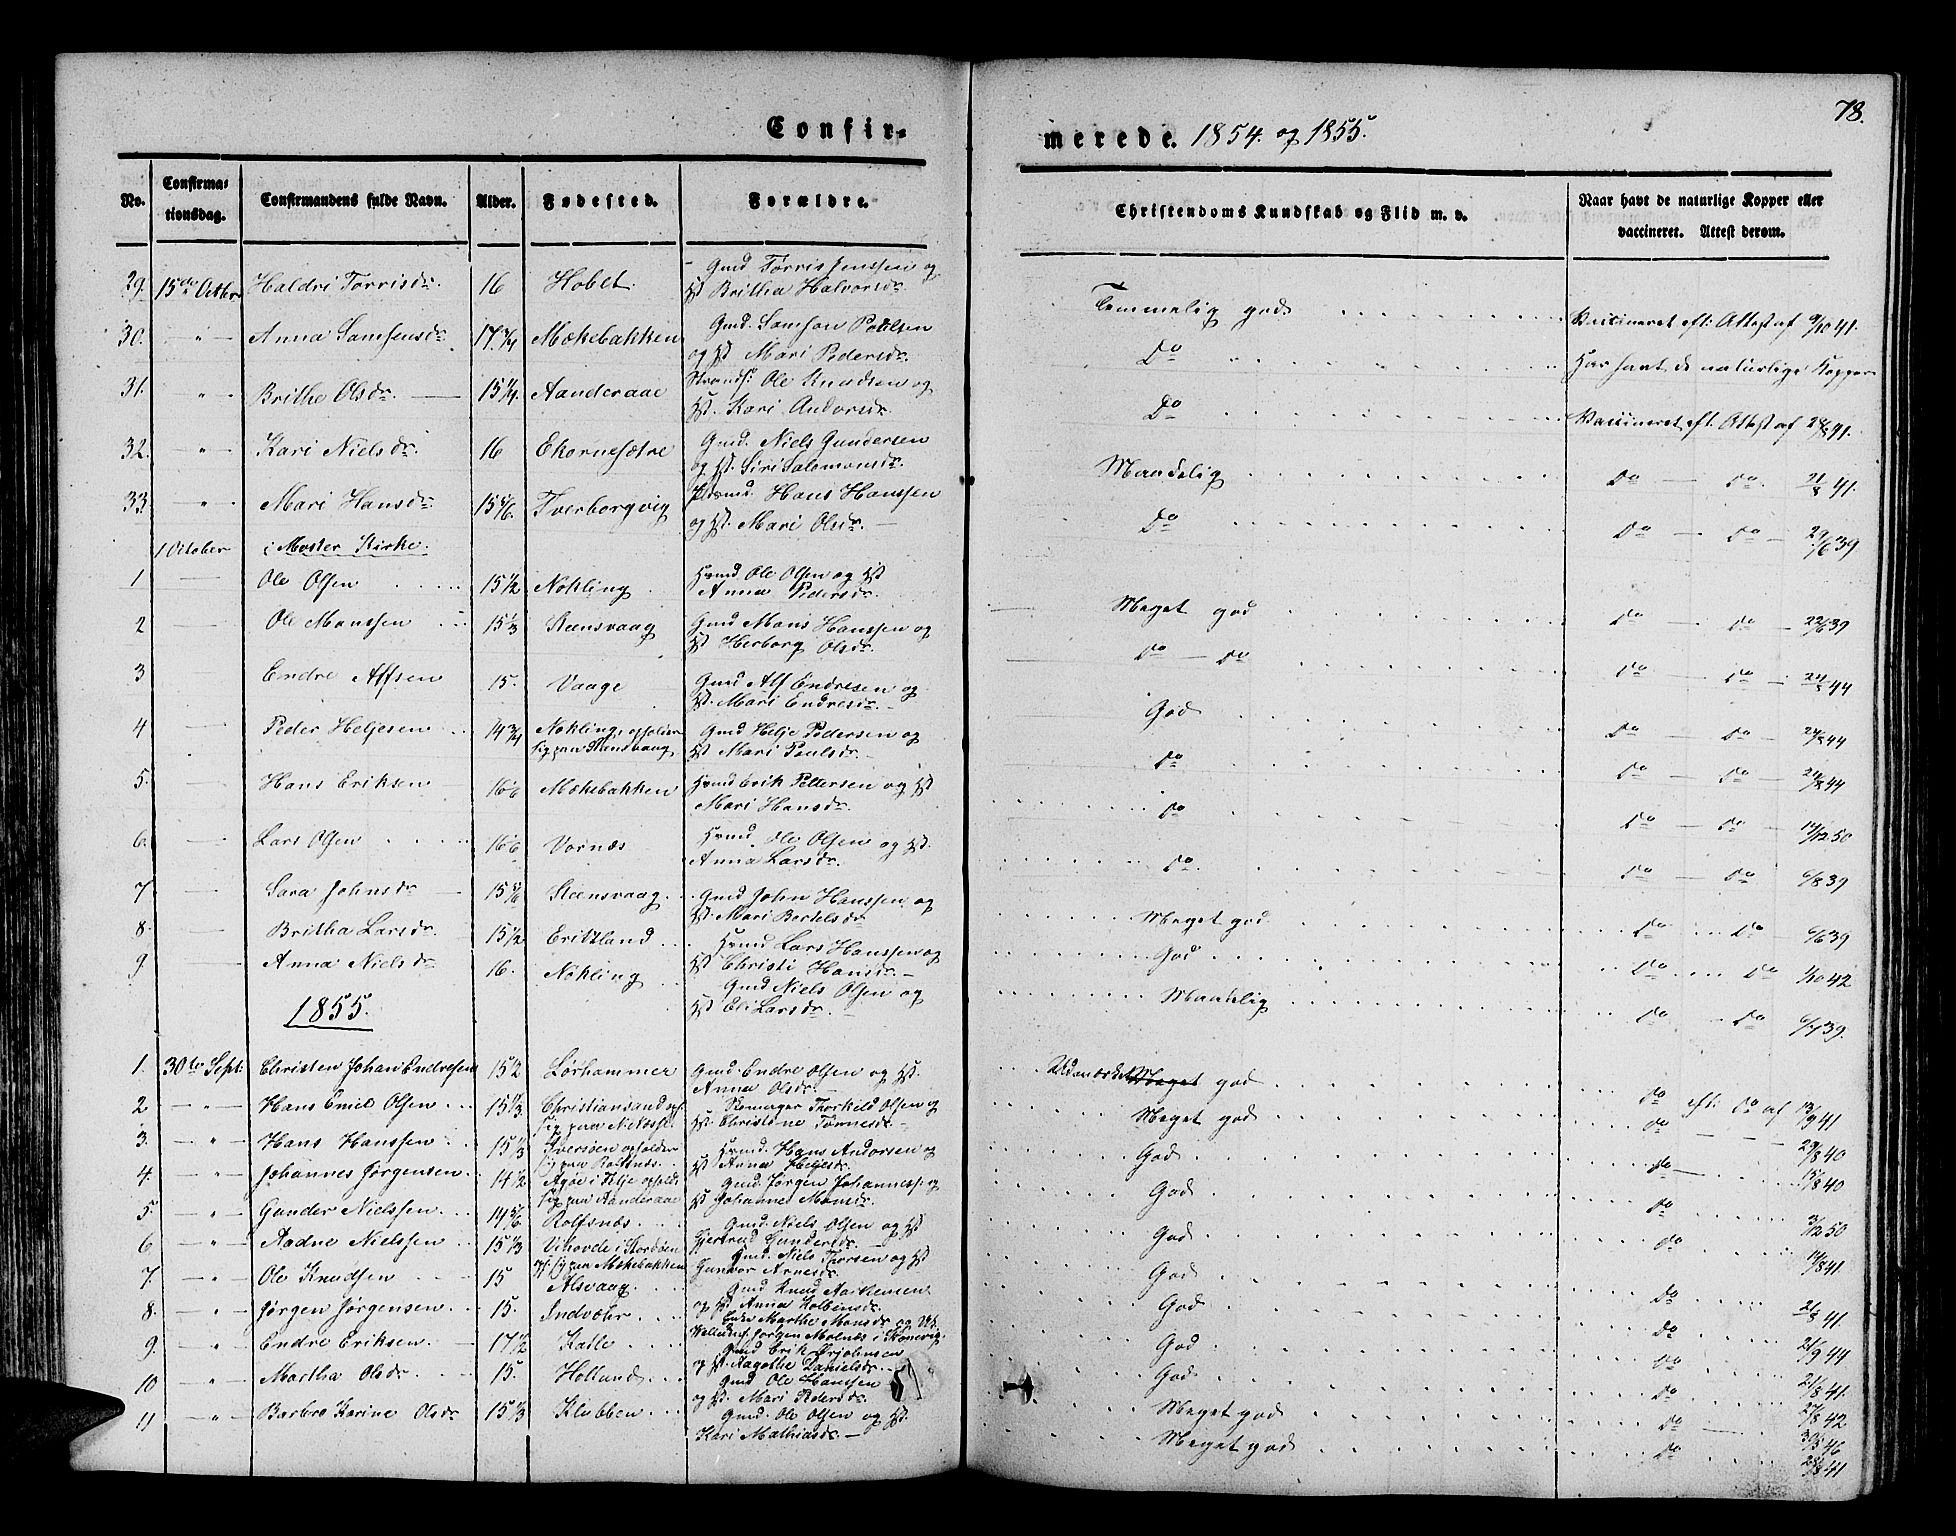 78.
Confir-
merede. 1854. og 1855.
No.
Confirma-
tionsdag.
Confirmandens fulde Navn.
Alder.
Fødested.
Forældre.
Christendoms Kundskab og Flid m. v.
Naar havt de naturlige Kopper eller
vaccineret. Attest derom.
29. 15de Octbr Haldri Torrisdr. 16 Hobet. Gmd Torris Jenssen og
Hst Britha Halvorsdr. Temmelig god Vaccineret eft: Attest af 9/10 41.
30. — " — Anna Samsensdr. 17 3/4 Mækebakken Gmd. Samson Poulsen
og Hst. Mari Pedersdr. Do Har havt de naturlige Kopper
31. " " Brithe Olsdr. 15 1/4. Aanderaae Strands. Ole Knudsen og
Hst. Kari Andorsdr. Do Vaccineret eft. Attest af 28/8 41.
32. — " — Kari Nielsdr. 16 Ekornesætre Gmd. Niels Gundersen
og Hst. Siri Salomonsdr. Maadelig Do — Do. 21/8 41.
33 — " — Mari Hansdr. 15 5/6. Tverborgvig Hans Hanssen
og Hst. Mari Olsdr. — Do Do — Do — 29/6 39
1 October i Moster Kirke.
1 — Ole Olsen 15 1/2 Nokling Hmd. Ole Olsen og Hst
Anna Pedersdr. Meget god Do — Do — 22/6 39
2 — Ole Monssen 15 1/3 Steensvaag Gmd Mons Hanssen og
Hst Herborg Olsdr. Do — Do Do — Do — 24/8 44
3 — Endre Alfsen 15. Vaage Gmd Alf Endresen og
Hst. Mari Endresdr. — God Do — Do — 24/8 44
4 — Peder Heljesen 14 3/4 Nokling, opholder
sig paa Steensvaag Gmd Helje Pedersen og
Hst Mari Poulsdr. — Do Do — Do — 24/8 44
5. — Hans Eriksen 16 1/6 Mækebakken Hmd Erik Pettersen og Hst
Mari Hansdr. Do Do — Do — 14/12 50
6. — Lars Olsen 16 1/6 Vornæs Hmd. Ole Olsen og Hst.
Anna Larsdr. Do. Do — Do 6/8 39
7 — Sara Johnsdr 15 5/6 Steensvaag Gmd John Hanssen og
Hst. Mari Bertelsdr Meget god Do Do — 6/6 39
8. — Britha Larsdr. 15 1/2 Eritsland Hmd Lars Hanssen og
Hst Christi Hansdr. — God Do Do 1/10 42
9 — Anna Nielsdr 16. Nokling Gmd Niels Olsen og
Hst Eli Larsdr. — Maadelig Do — Do 6/7 39.
1855.
1. 30te Sept: Christen Johan Endresen 15 1/2 Lørhammer Gmd. Endre Olsen og Hst.
Anna Olsdr. — Udmærket Meget god Do eft: Do af 13/9 41
2 — " — Hans Emil Olsen 15 1/3 Christiansand oph.
sig paa Thorkild Olsen og
Hst. Christine Tønnesdr. — Meget god Do 29/8 40
3. — " Hans Hanssen 15 1/3 Iversøen opholder
sig paa Rolfsnæs Hmd. Hans Andorsen og
Hst Anna Heljesdr. God Do — 15/8 40
4. — " — Johannes Jørgensen 14 1/2 Agøe i Tysse opholder
sig paa Aanderaae Gmd. Jørgen Johanness: og
Hst Johanne Monsdr. God Do 3/12 50
5 — " — Gunder Nielssen 14 5/6 Rolfsnæs Gmd. Niels Olsen og Hst
Gjertrud Gundersdr. God Do 14/8 41.
6 — " — Aadne Nielssen 15 1/3 Vihovde i Stordøen
oph. sig paa Mækebakken Gmd. Niels Thorsen og Hst
Gunvor Arnesdr. God Do 21/8 41
7. — " — Ole Knudsen 15 Alsvaag Gmd Knud Aarkemen
og Hst Anna Kolbensdr. God Do 21/9 44
8. — " — Jørgen Jørgensen 15. Indvær Enke Marthe Monsdr. og Uk.
Jørgen Molnæs i Skonevig. God Do 21/8 41.
9 — " — Endre Eriksen 17 1/2 Katle Gmd Erik Ørjohnsen
og Hst. Ragnthe Danielsdr. God Do 27/8 42
10 — " — Martha Olsdr. 15. Holland Gmd Ole Hanssen
og Hst. Mari Pedersdr. Meget god Do 30/5 46
11 — " — Barbro Karine Olsdr 15 1/3 Klubben Gmd. Ole Olsen og Hst.
Kari Mathiasdr. — Meget god Do 28/8 41